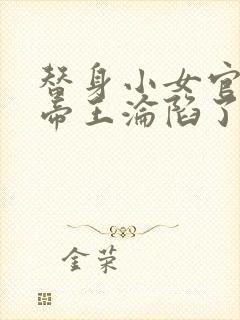 替身小女官
帝王沦陷了
金荣